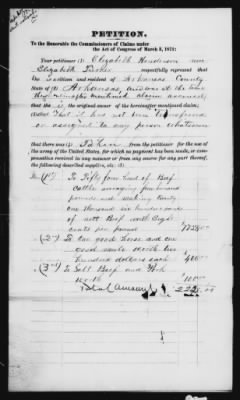 PETITION.
To the Honorable the Commissioners of Claims under
the Act of Congress of March 3, 1871:
The Petition of Elizabeth Henderson now
Elizabeth respectfully represent that
citizen and resident of Arkansas County
State of Arkansas, and was at the time
mentioned
that she is the original owner of the hereinafter mentioned claim;
that it has not been transferred
or assigned to any person whatsoever
that there was taken from the petitioner for the use of
the army of the United States, for which no payment has been made, or compensation received in any manner or from any source for any part thereof, the following described supplies, viz:
(1st) To Fifty four head of Beef
Cattle averaging five hundred
pounds and making twenty
one thousand six hundred pounds
of nett Beef worth Eight
cents per pound $1728.00
(2nd) To One good horse and one
good mule worth two
hundred dollars each 400.00
(3rd) To Salt Beef and Pork
worth 100.00
Total Amount